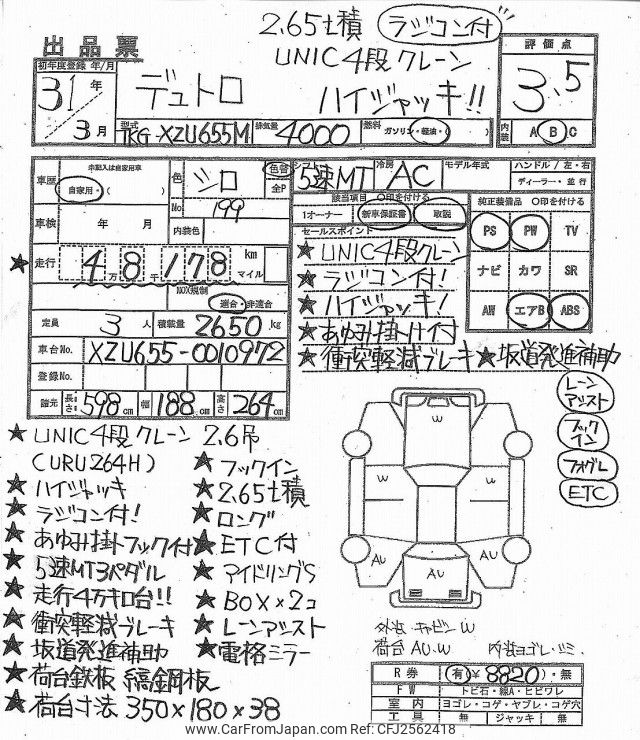 2.65t積 ラジコン付
UNIC4段クレーン
ハイジャッキ!!
出品票
初年度登録 年/月
31年
3月
デュトロ
型式 TKG-XZU655M 排気量 4000 燃料 ガソリン・軽油・( )
評価点
3.5
内装 A B C
車歴 未記入は自家用車
自家用・( )
色 シロ 色替 全P
No. 199
内装色
車検 年 月
★ 走行 4万8千178 km マイル
NOX規制
適合・非適合
定員 3人 積載量 2650kg
車台No. XZU655-0010972
登録No.
諸元 長さ 598cm 幅 188cm 高さ 264cm
シフト 5速MT 冷房 AC モデル年式
ハンドル/左・右
ディーラー・並行
該当項目 〇印を付ける
1オーナー 新車保証書 取説
セールスポイント
★UNIC4段クレーン
★ラジコン付!
★ハイジャッキ!
★あゆみ掛け付
★衝突軽減ブレーキ ★坂道発進補助
純正装備品 〇印を付ける
PS PW TV
ナビ カワ SR
AW エアB ABS
レーンアシスト
フックイン
フォグL
ETC
★UNIC4段クレーン 2.6吊
(URU264H) ★フックイン
★ハイジャッキ ★2.65t積
★ラジコン付! ★ロング
★あゆみ掛フック付 ★ETC付
★5速MT3ペダル ★アイドリングS
★走行4万キロ台!! ★BOX×2コ
★衝突軽減ブレーキ ★レーンアシスト
★坂道発進補助 ★電格ミラー
★荷台鉄板 縞鋼板
★荷台寸法 350×180×38
W
W W
AU AU
AU
外装 キャビンW
荷台 AU.W 内装ヨゴレ・シミ
R券 (有)¥8820)・無
FW トビ石・線A・ヒビワレ
室内 ヨゴレ・コゲ・ヤブレ・コゲ穴
工具 無 ジャッキ 無
www.CarFromJapan.com Ref:CFJ2562418